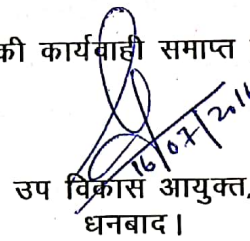 की कार्यवाही समाप्त
16/07/201
उप विकास आयुक्त,
धनबाद।